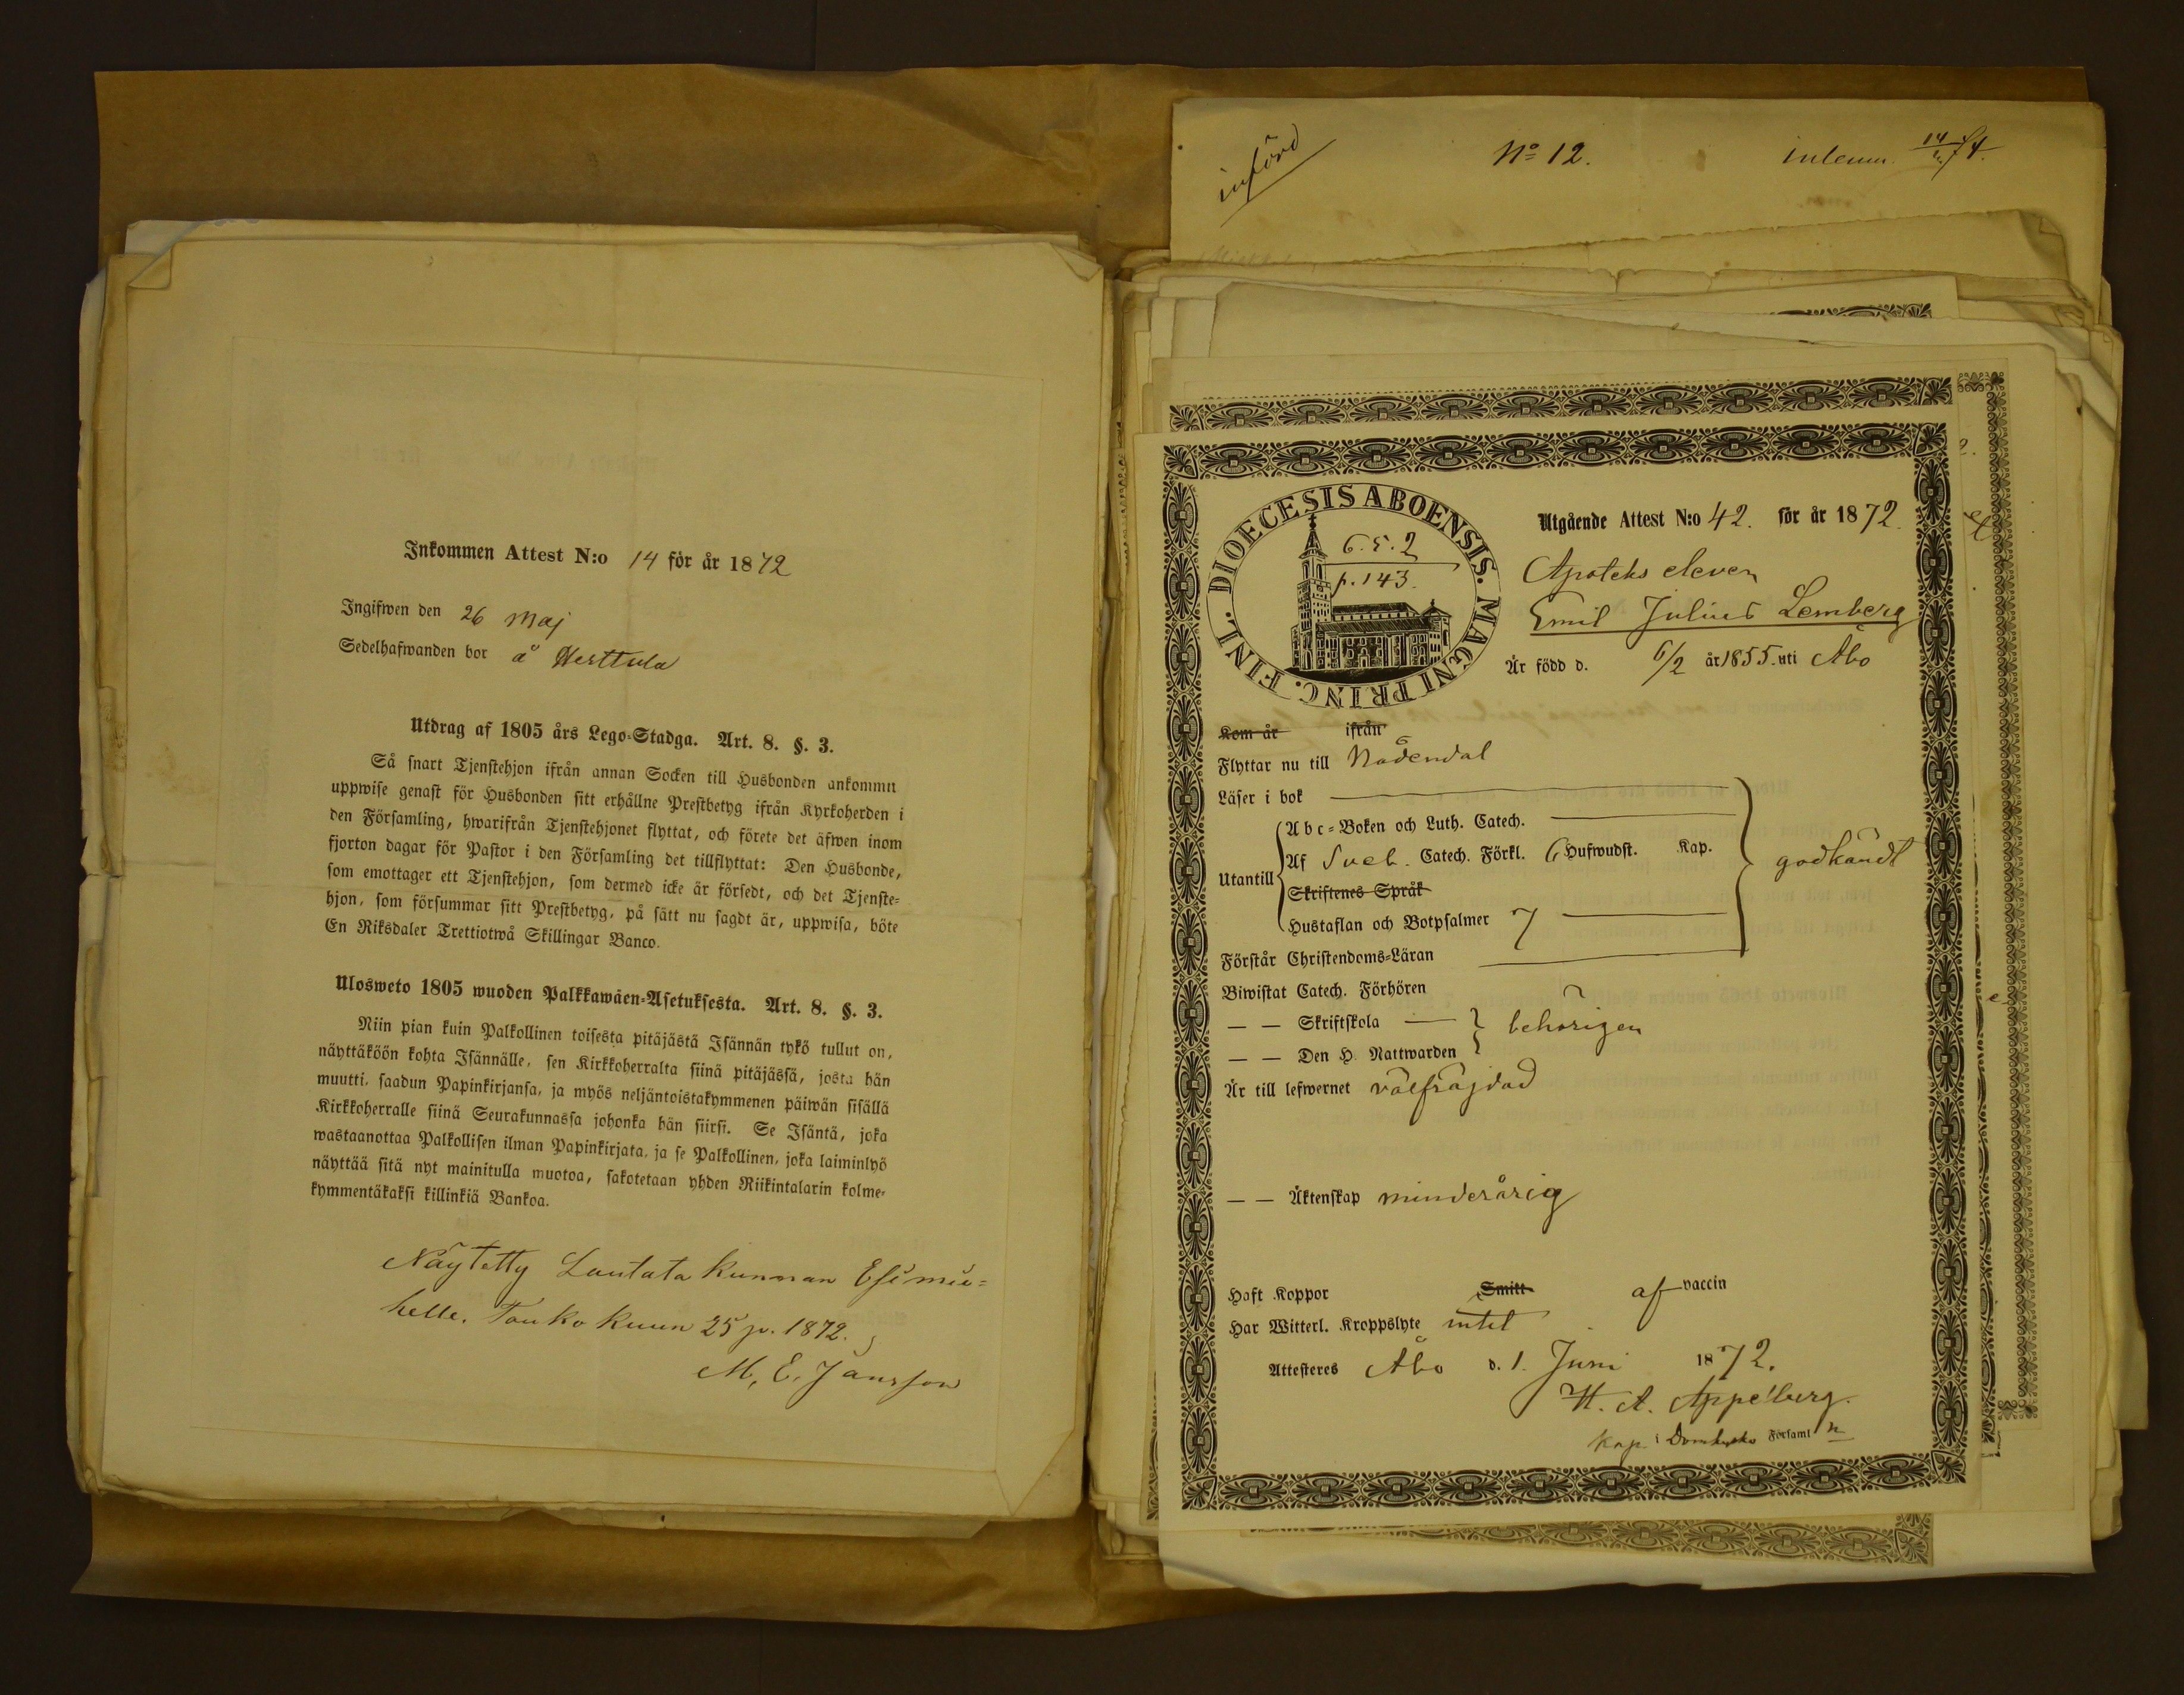 Inkommen Attest N:o 14 för år 1872
Ingifwen den 26 Maj
Sedelhafwanden bor å Herttula
Utdrag af 1805 års Lego-Stadga. Art. 8. §. 3.
Så snart Tjenstehjon ifrån annan Socken till Husbonden ankommit
uppwise genast för Husbonden sitt erhållne Prestbetyg ifrån Kyrkoherden i
den Församling, hwarifrån Tjenstehjonet flyttat, och förete det äfwen inom
fjorton dagar för Pastor i den Församling det tillflyttat: Den Husbonde,
som emottager ett Tjenstehjon, som dermed icke är försedt, och det Tjenste-
hjon, som försummar sitt Prestbetyg, på sätt nu sagdt är, uppwisa, böte
En Riksdaler Trettiotwå Skillingar Banco.
Ulosweto 1805 wuoden Palkkawäen-Asetuksesta. Art. 8. §. 3.
Niin pian kuin Palkollinen toisesta pitäjästä Isännän tykö tullut on,
näyttäköön kohta Isännälle, sen Kirkkoherralta siinä pitäjässä, josta hän
muutti, saadun Papinkirjansa, ja myös neljäntoistakymmenen päiwän sisällä
Kirkkoherralle siinä Seurakunnassa johonka hän siirsi. Se Isäntä, joka
wastaanottaa Palkollisen ilman Papinkirjata, ja se Palkollinen, joka laiminlyö
näyttää sitä nyt mainitulla muotoa, sakotetaan yhden Riikintalarin kolme-
kymmentäkaksi killinkiä Bankoa.
Näytetty Lautata kunnan Esimie=
helle. Touko Kuun 25 p. 1872.
M. E. Jansson
införd
No 12.
14
74.
DIOECESIS ABOENSIS. MAGNI PRINC. FINL.
6.5.2
p. 143.
Utgående Attest N:o 42. för år 1872.
Apoteks eleven
Emil Julius Lemberg
Är född d. 6/2 år 1855. uti Åbo
Kom år ifrån
Flyttar nu till Nådendal
Läser i bok
Utantill
Abc-Boken och Luth. Catech.
Af Sveb. Catech. Förkl. 6 Hufwudst. Kap.
godkändt
Skriftenes Språk
Hustaflan och Botpsalmer 7
Förstår Christendoms-Läran
Biwistat Catech. Förhören
— — Skriftskola — behörigen
— — Den H. Nattwarden
Är till lefwernet välfrägdad
— — Äktenskap minderårig
Haft Koppor Smitt af vaccin
Har Witterl. Kroppslyte intet
Attesteres Åbo d. 1. Juni 1872.
H. A. Appelberg.
Kap. i Domkyrko Församl n